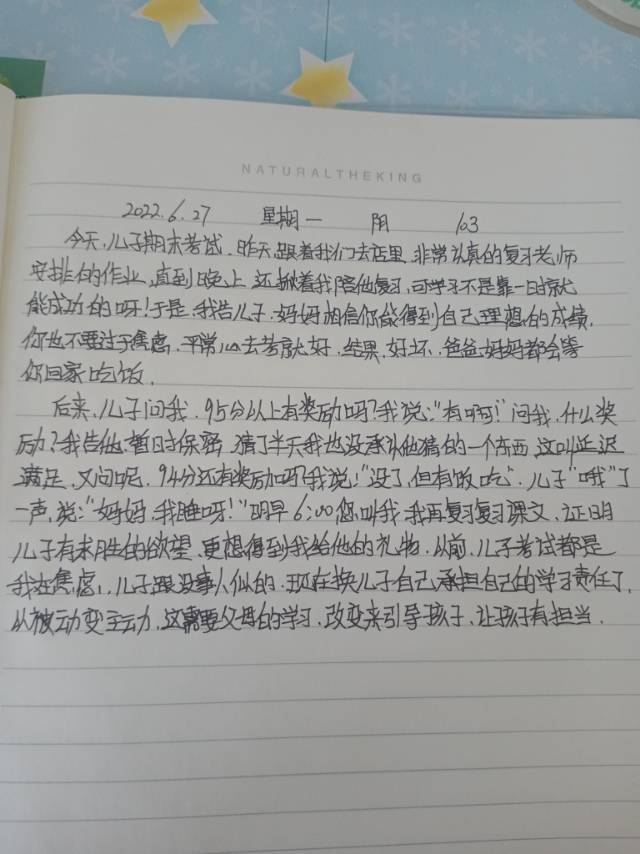 NATURALTHEKING
2022.6.27 星期一 阴 103
今天,儿子期末考试,昨天跟着我们去店里,非常认真的复习老师
安排的作业,直到晚上,还掀着我陪他复习,可学习不是靠一日就
能成功的呀!于是,我告儿子,妈妈相信你能得到自己理想的成绩,
你也不要过于焦虑,平常心去考就好,结果,好坏,爸爸妈妈都会等
你回家吃饭。
后来,儿子问我,95分以上有奖励吗?我说:“有啊!”问我,什么奖
励?我告他,暂时保密,猜了半天我也没承认他猜的一个东西,这叫延迟
满足,又问呢,94分还有奖励吗?我说:“没了,但有饭吃”,儿子“哦”了
一声,说:“妈妈,我睡呀!”明早6:00您叫我,我再复习复习课文,证明
儿子有求胜的欲望,更想得到我给他的礼物,从前,儿子考试都是
我在焦虑,儿子跟没事人似的,现在换儿子自己承担自己的学习责任了,
从被动变主动,这需要父母的学习,改变来引导孩子,让孩子有担当.